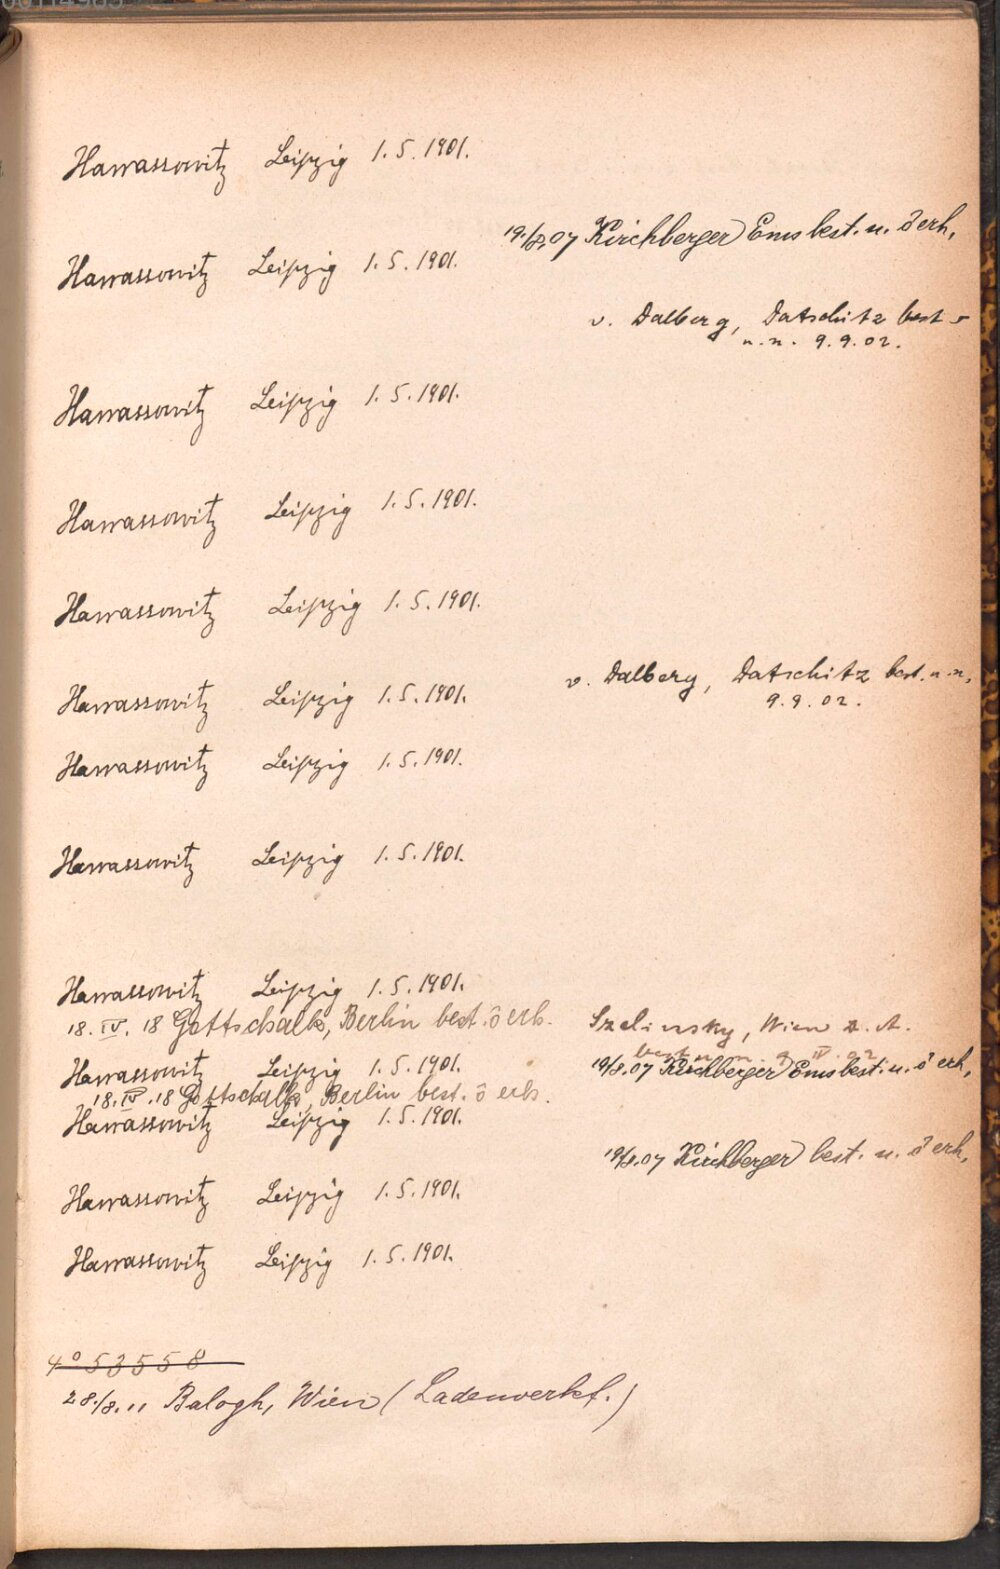 Harrassowitz Leipzig 1.5.1901.
19/8.07 Kirchberger Ems best. u. ô erh,
Harrassowitz Leipzig 1.5.1901.
v. Dalberg, Datschitz best
u.n. 9.9.02.
Harrassowitz Leipzig 1.5.1901.
Harrassowitz Leipzig 1.5.1901.
Harrassowitz Leipzig 1.5.1901.
v. Dalberg, Datschitz best. u.n,
9.9.02.
Harrassowitz Leipzig 1.5.1901.
Harrassowitz Leipzig 1.5.1901.
Harrassowitz Leipzig 1.5.1901.
Harrassowitz Leipzig 1.5.1901.
18.IV.18 Gottschalk, Berlin best. ô erh. Szelinsky, Wien
best u. n. 9 IV. 02
Harrassowitz Leipzig 1.5.1901. 19/8.07 Kirchberger Ems best. u. ô erh,
18.IV.18 Gottschalk, Berlin best. ô erh.
Harrassowitz Leipzig 1.5.1901.
19/8.07 Kirchberger best. u. ô erh,
Harrassowitz Leipzig 1.5.1901.
Harrassowitz Leipzig 1.5.1901.
4° 53558
28./8.11 Balogh, Wien (Ladenverkf.)